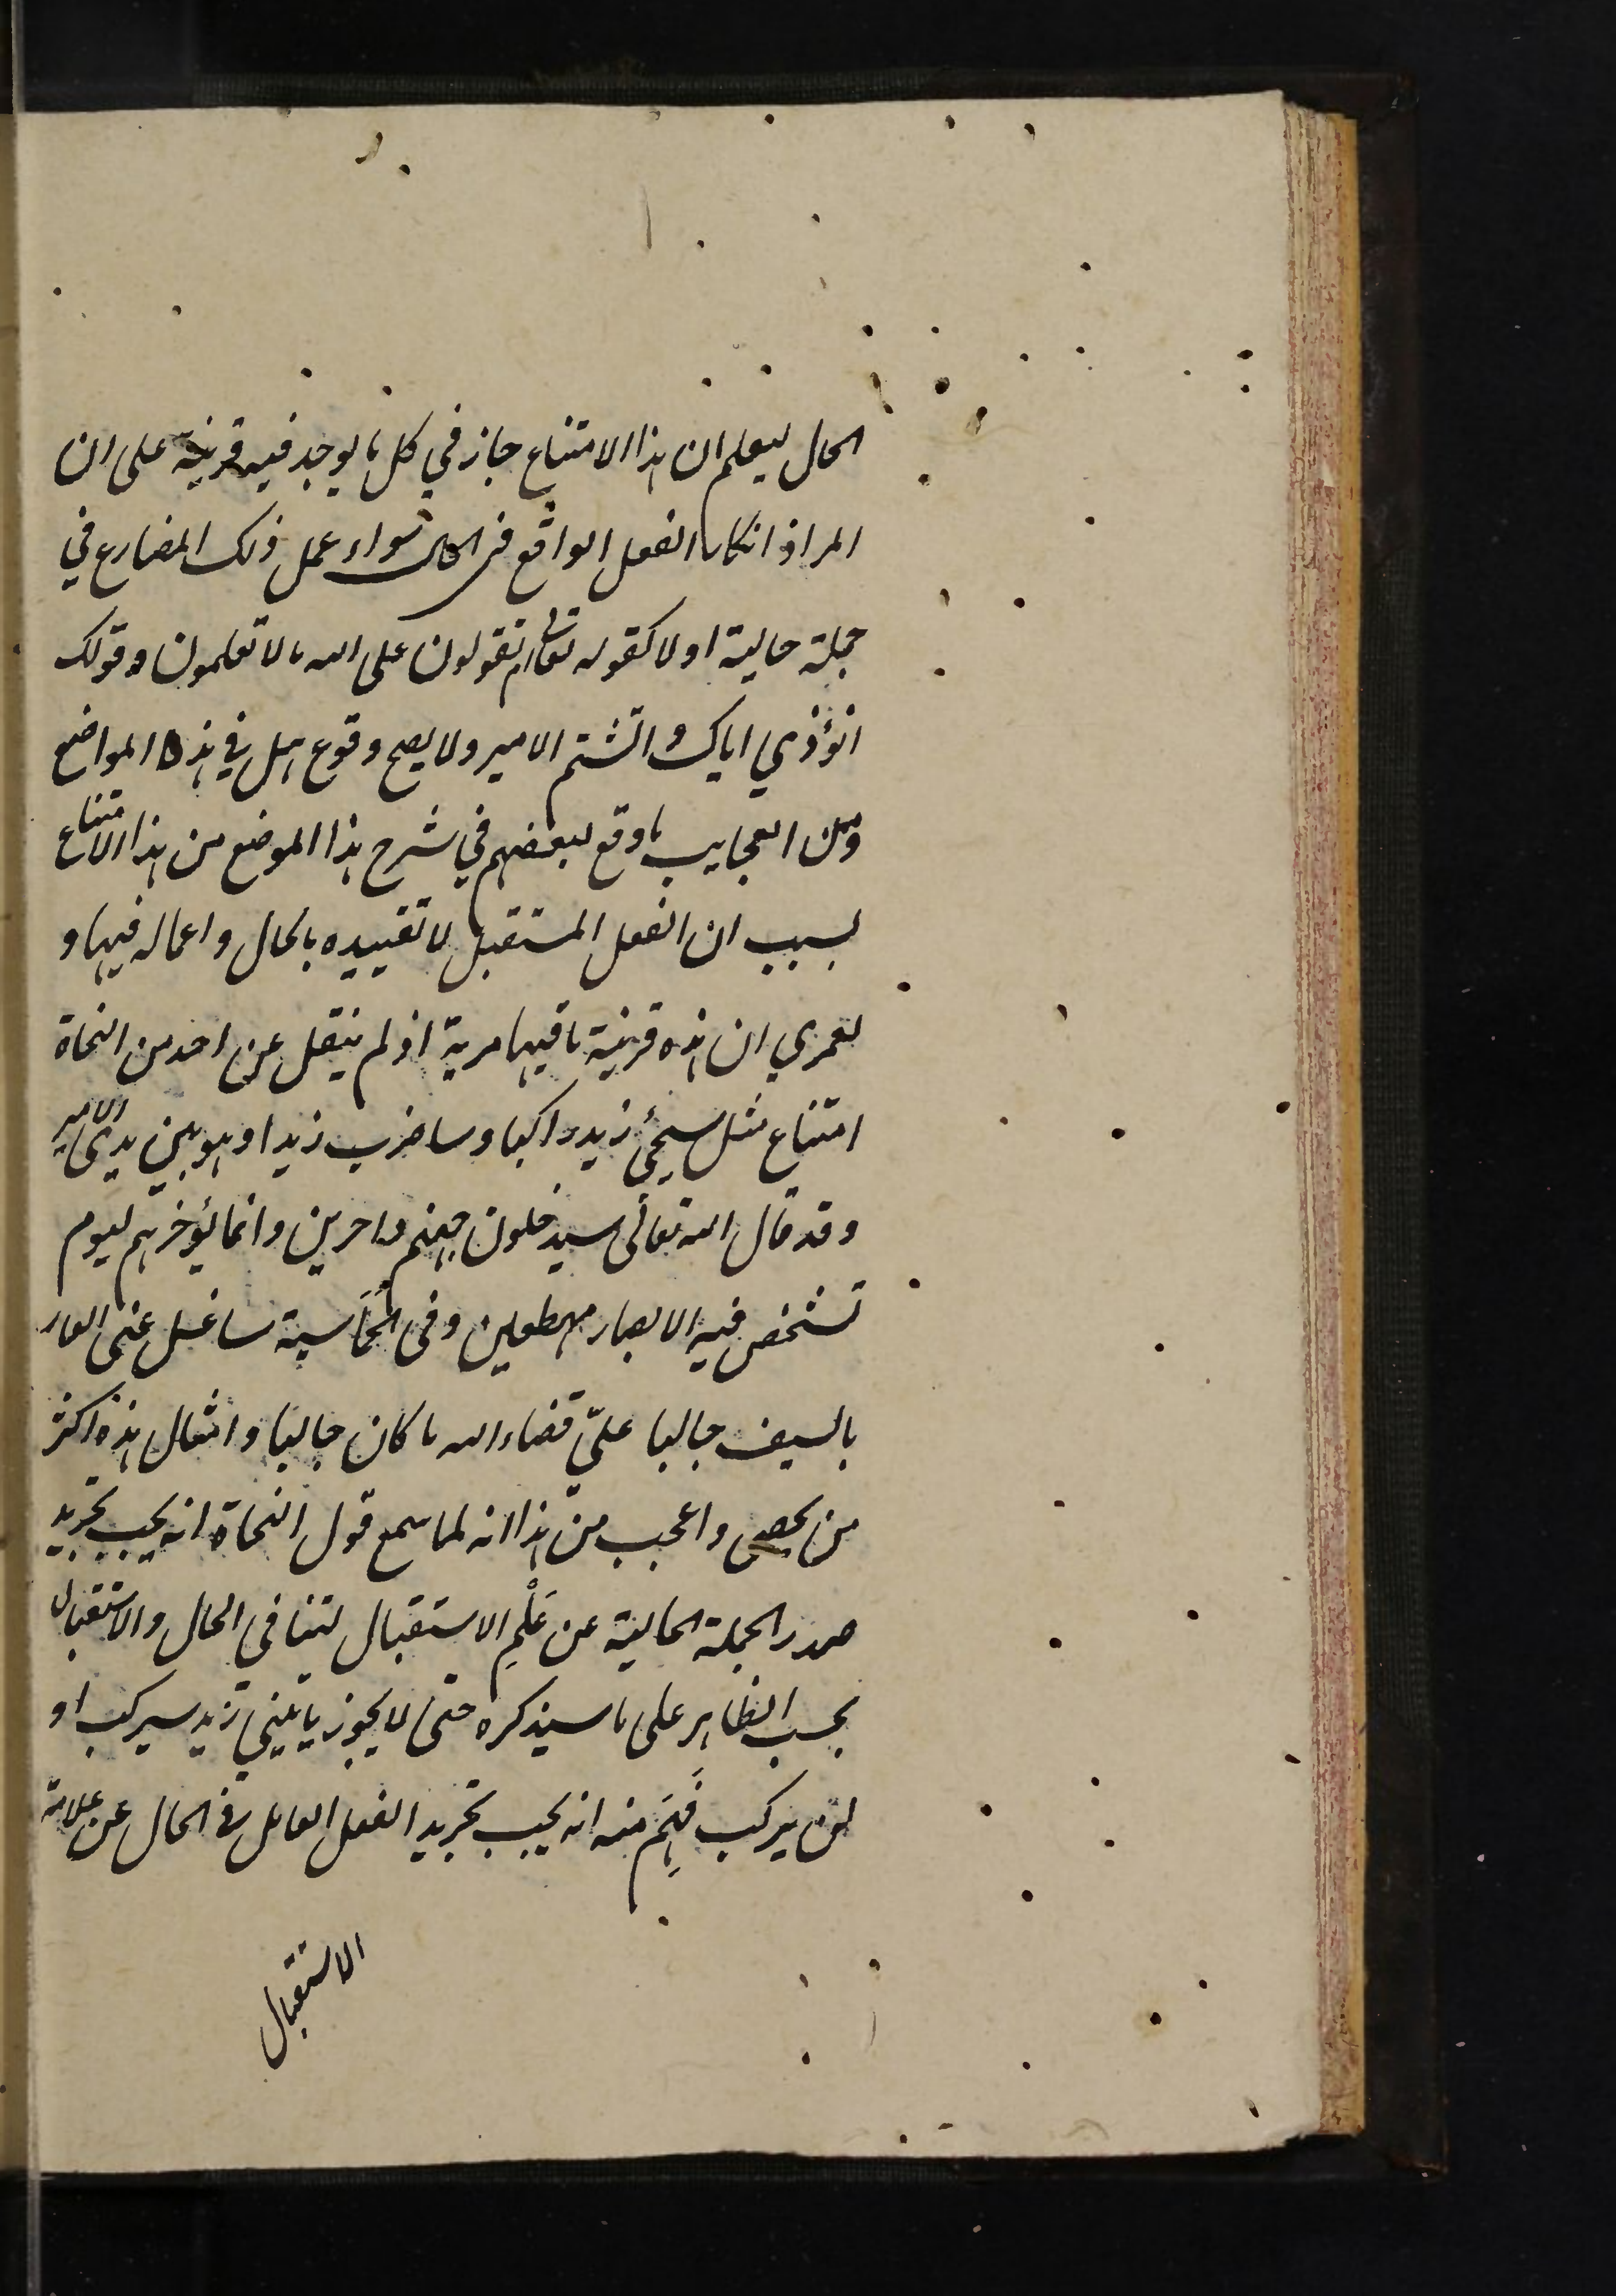 الحال ليعلم ان هذا الامتناع جاز في كل ما يوجد فيه قرينة على ان
المراد انكار الفعل الواقع في الحال سواء عمل ذلك المضارع في
جملة حالية او لا كقوله تعالى اتقولون على الله ما لا تعلمون وقولك
اتؤذي اباك واتشتم الامير ولا يصح وقوع هل في هذه المواضع
ومن العجايب ما وقع لبعضهم في شرح هذا الموضع من هذا الامتناع
بسبب ان الفعل المستقبل لا تقييده بالحال واعماله فيها و
لعمري ان هذه قرينة ما فيها مرية اذ لم ينقل عن احد من النحاة
امتناع مثل سيجئ زيد راكبا وساضرب زيدا وهو بين يدي الامير
وقد قال الله تعالى سيدخلون جهنم داخرين وانما يؤخرهم ليوم
تشخص فيه الابصار مهطعين وفى الحَمَاسية ساغسل عنى العار
بالسيف جالبا علىّ قضاء الله ما كان جالبا وامثال هذه اكثر
من يحصى واعجب من هذا انه لما سمع قول النحاة انه يجب تجريد
صدر الجملة الحالية عن عَلَمِ الاستقبال لتنافي الحال والاستقبال
بحسب الظاهر على ما سيذكره حتى لا يجوز ياتيني زيد سيركب او
لن يركب فَهِمَ منه انه يجب تجريد الفعل العامل في الحال عن علامة
الاستقبال